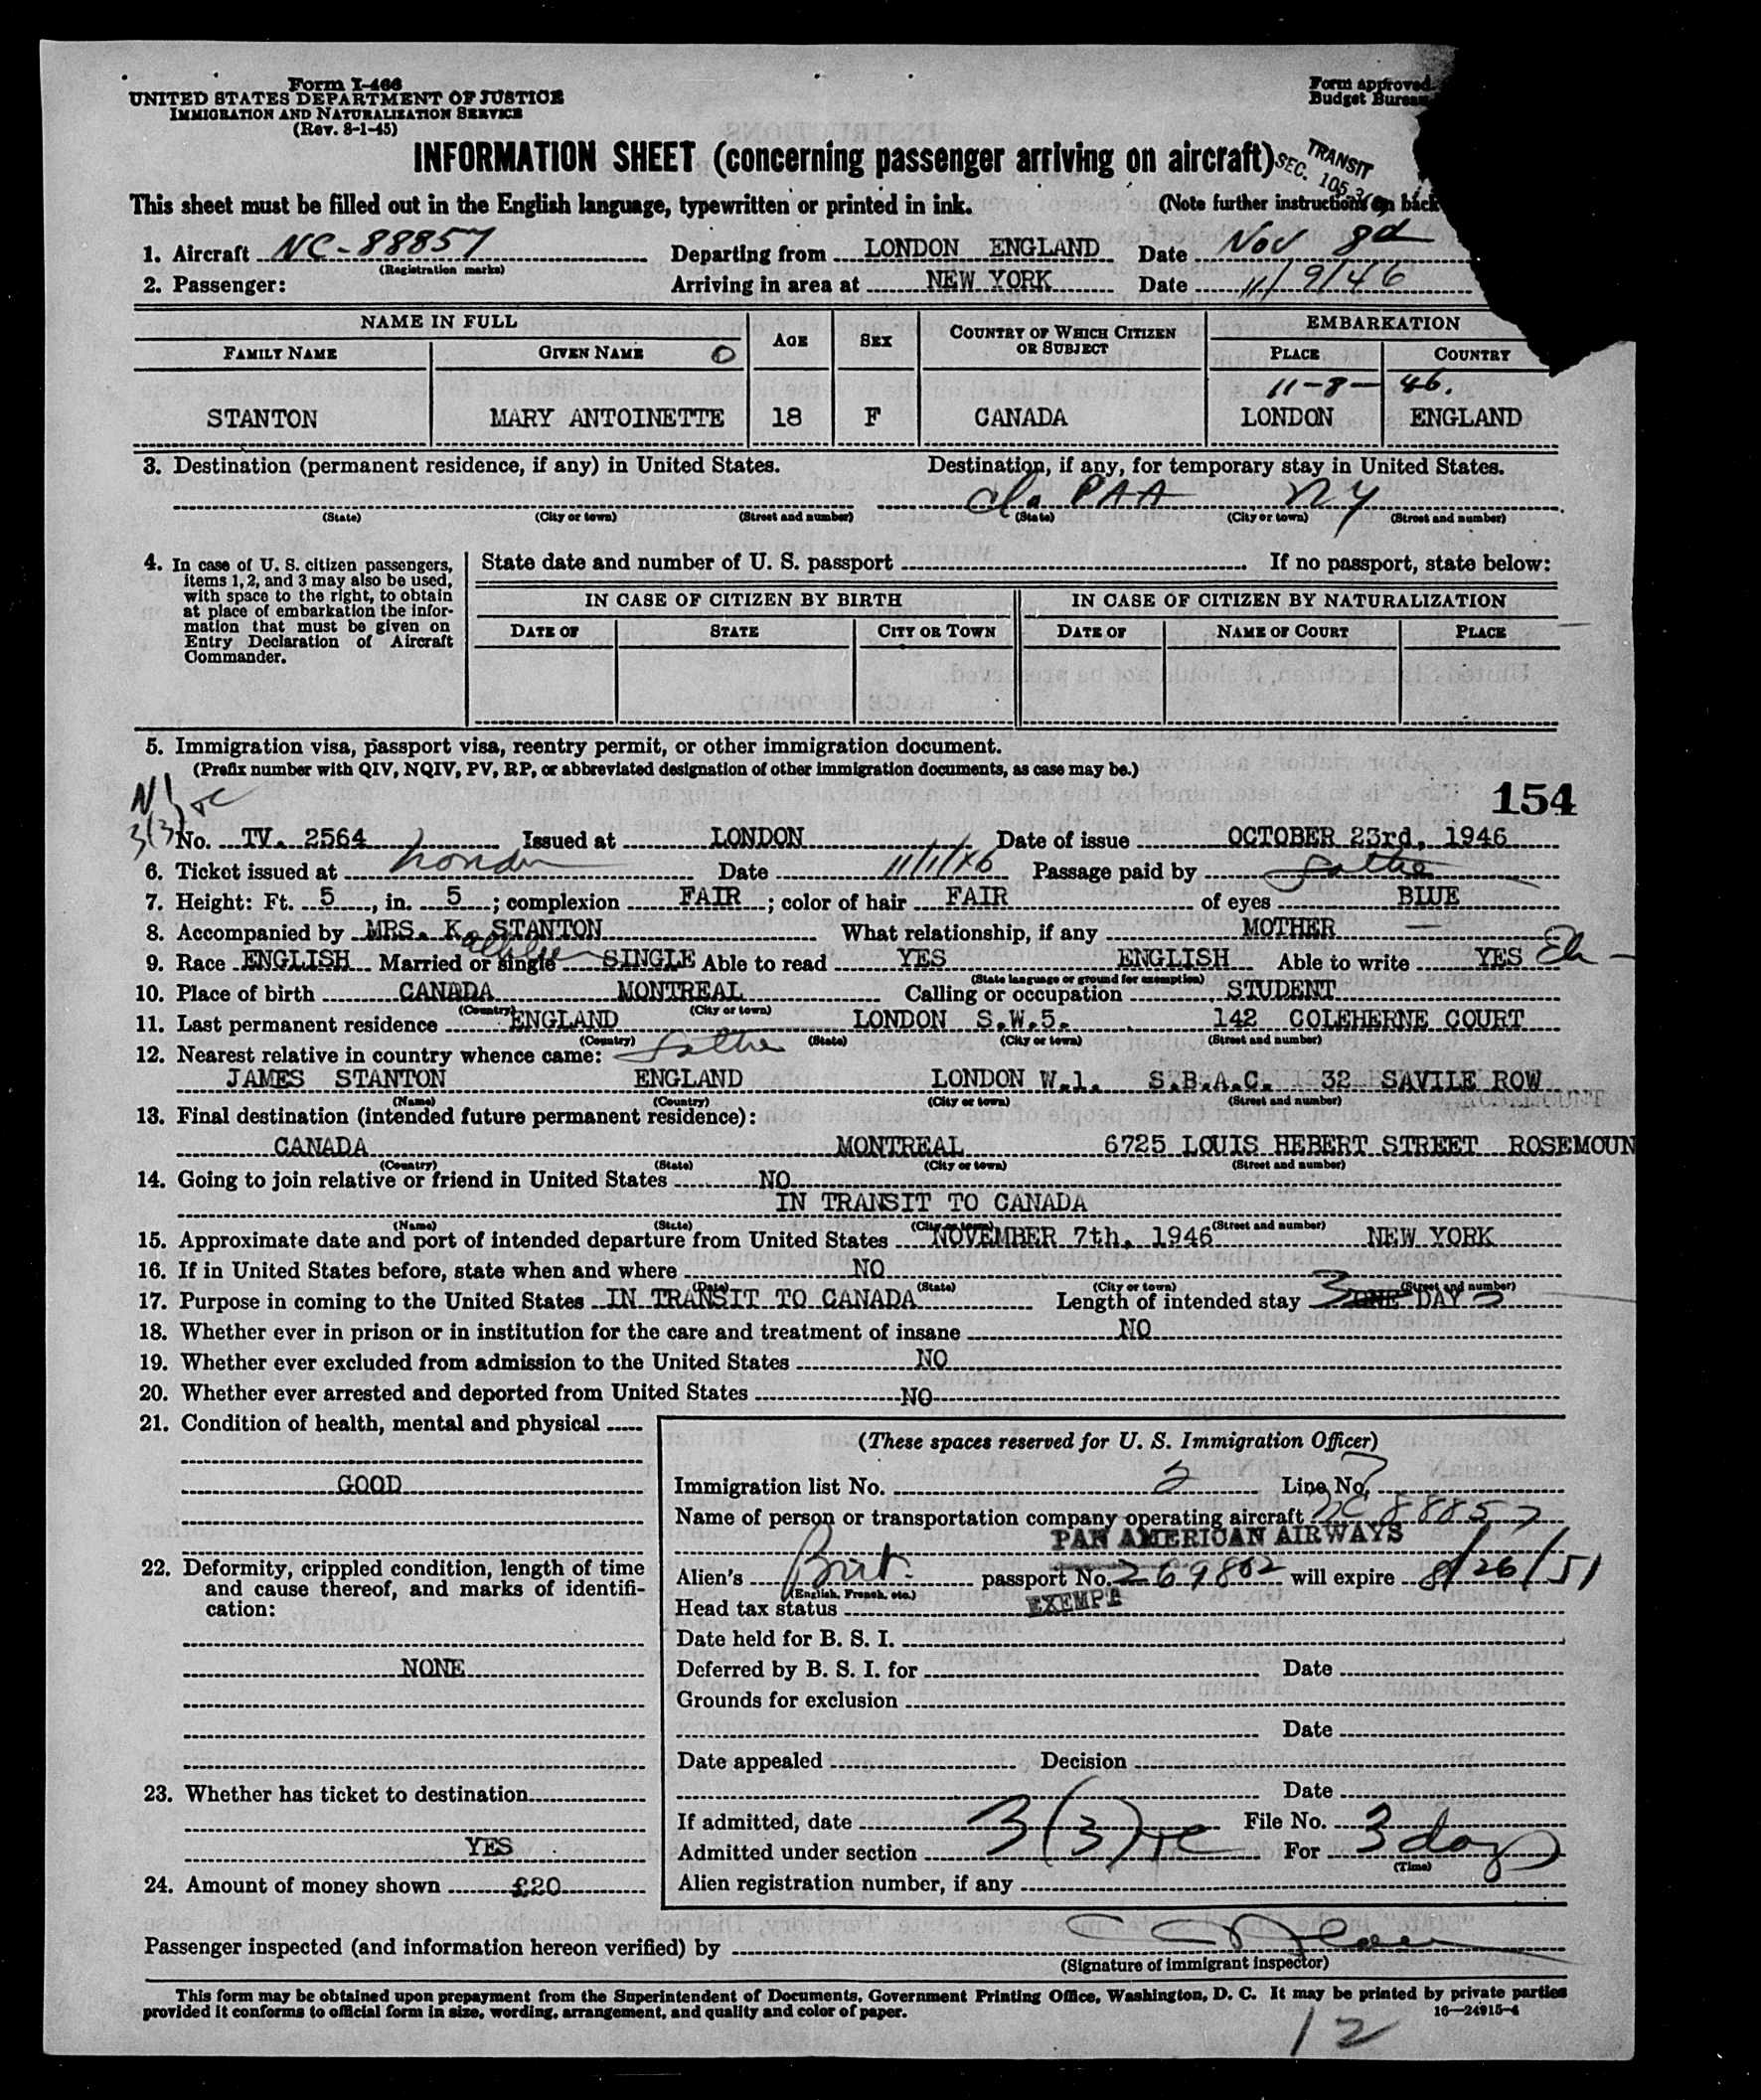 Form I-466
UNITED STATES DEPARTMENT OF JUSTICE
IMMIGRATION AND NATURALIZATION SERVICE
(Rev. 8-1-45)
Form approved.
Budget Bureau
INFORMATION SHEET (concerning passenger arriving on aircraft)
TRANSIT
SEC. 105.3
This sheet must be filled out in the English language, typewritten or printed in ink. (Note further instructions on back
1. Aircraft NC-88857 Departing from LONDON ENGLAND Date Nov 8d
(Registration marks)
2. Passenger: Arriving in area at NEW YORK Date 11/9/46
NAME IN FULL AGE SEX COUNTRY OF WHICH CITIZEN OR SUBJECT EMBARKATION
FAMILY NAME GIVEN NAME O PLACE COUNTRY
11-8-46.
STANTON MARY ANTOINETTE 18 F CANADA LONDON ENGLAND
3. Destination (permanent residence, if any) in United States. Destination, if any, for temporary stay in United States.
c/o PAA NY
(State) (City or town) (Street and number) (State) (City or town) (Street and number)
4. In case of U. S. citizen passengers, items 1, 2, and 3 may also be used, with space to the right, to obtain at place of embarkation the information that must be given on Entry Declaration of Aircraft Commander.
State date and number of U. S. passport If no passport, state below:
IN CASE OF CITIZEN BY BIRTH IN CASE OF CITIZEN BY NATURALIZATION
DATE OF STATE CITY OR TOWN DATE OF NAME OF COURT PLACE
5. Immigration visa, passport visa, reentry permit, or other immigration document.
(Prefix number with QIV, NQIV, PV, RP, or abbreviated designation of other immigration documents, as case may be.)
154
3(3)
No. TV. 2564 Issued at LONDON Date of issue OCTOBER 23rd, 1946
6. Ticket issued at London Date 11/1/46 Passage paid by father
7. Height: Ft. 5, in. 5; complexion FAIR; color of hair FAIR of eyes BLUE
8. Accompanied by MRS. K. STANTON What relationship, if any MOTHER
9. Race ENGLISH Married or single SINGLE Able to read YES ENGLISH Able to write YES
(State language or ground for exemption)
10. Place of birth CANADA MONTREAL Calling or occupation STUDENT
(Country) (City or town)
11. Last permanent residence ENGLAND LONDON S.W.5. 142 COLEHERNE COURT
(Country) (State) (City or town) (Street and number)
12. Nearest relative in country whence came: father
JAMES STANTON ENGLAND LONDON W.1. S.B.A.C. 32 SAVILE ROW
(Name) (Country) (City or town) (Street and number)
13. Final destination (intended future permanent residence):
CANADA MONTREAL 6725 LOUIS HEBERT STREET ROSEMOUN
(Country) (State) (City or town) (Street and number)
14. Going to join relative or friend in United States NO
IN TRANSIT TO CANADA
(Name) (State) (City or town) (Street and number)
15. Approximate date and port of intended departure from United States NOVEMBER 7th, 1946 NEW YORK
16. If in United States before, state when and where NO
(Date) (State) (City or town) (Street and number)
17. Purpose in coming to the United States IN TRANSIT TO CANADA Length of intended stay 3 ONE DAY s
18. Whether ever in prison or in institution for the care and treatment of insane NO
19. Whether ever excluded from admission to the United States NO
20. Whether ever arrested and deported from United States NO
21. Condition of health, mental and physical
GOOD
22. Deformity, crippled condition, length of time and cause thereof, and marks of identification:
NONE
23. Whether has ticket to destination
YES
24. Amount of money shown £20
(These spaces reserved for U. S. Immigration Officer)
Immigration list No. 2 Line No. 7
Name of person or transportation company operating aircraft NC 88857
PAN AMERICAN AIRWAYS
Alien's Brit. passport No. 269802 will expire 8/26/51
(English, French, etc.)
Head tax status EXEMPT
Date held for B. S. I.
Deferred by B. S. I. for Date
Grounds for exclusion
Date
Date appealed Decision
Date
If admitted, date File No.
Admitted under section 3(3) For 3 days
(Time)
Alien registration number, if any
Passenger inspected (and information hereon verified) by
(Signature of immigrant inspector)
This form may be obtained upon prepayment from the Superintendent of Documents, Government Printing Office, Washington, D. C. It may be printed by private parties
provided it conforms to official form in size, wording, arrangement, and quality and color of paper. 16—24915-4
12